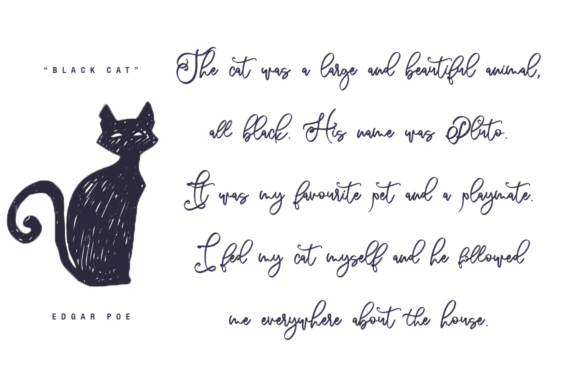 "BLACK CAT"
The cat was a large and beautiful animal,
all black. His name was Pluto.
It was my favourite pet and a playmate.
I fed my cat myself and he followed
me everywhere about the house.
EDGAR POE